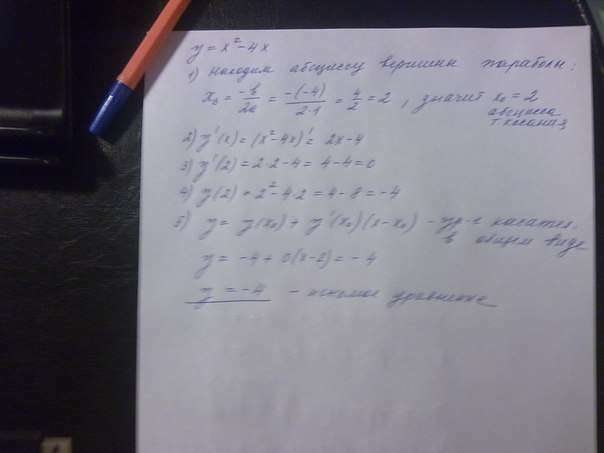 y = x² - 4x
1) Находим абсциссу вершины параболы:
x₀ = -b/2a = -(-4)/2·1 = 4/2 = 2, значит x₀ = 2
абсцисса
т. касания
2) y'(x) = (x² - 4x)' = 2x - 4
3) y'(2) = 2·2 - 4 = 4 - 4 = 0
4) y(2) = 2² - 4·2 = 4 - 8 = -4
5) y = y(x₀) + y'(x₀)(x - x₀) - ур-е касател.
в общем виде
y = -4 + 0(x - 2) = -4
y = -4 - искомое уравнение